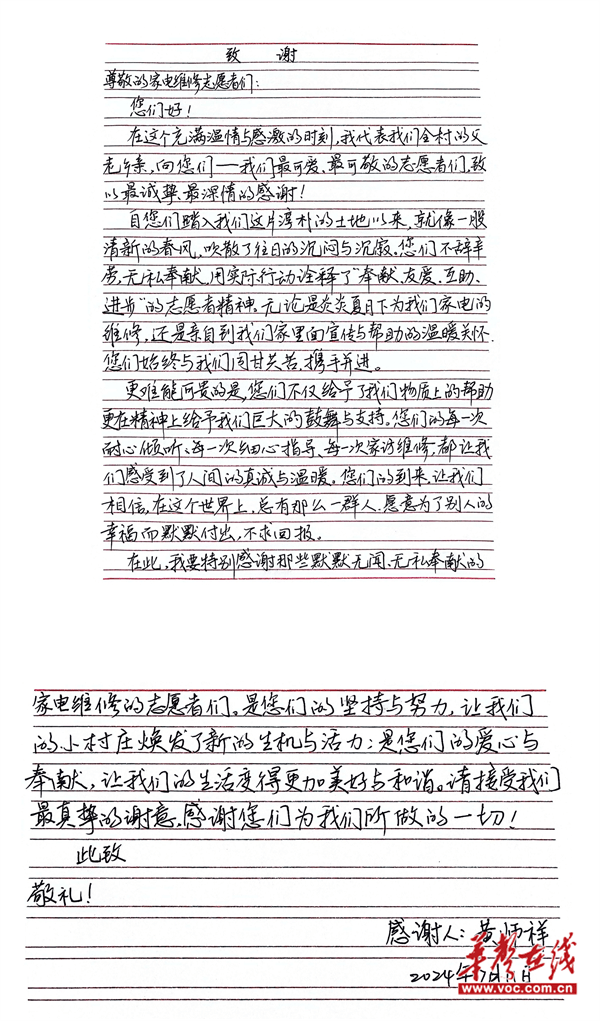 致 谢
尊敬的家电维修志愿者们:
您们好!
在这个充满温情与感激的时刻,我代表我们全村的父
老乡亲,向您们——我们最可爱、最可敬的志愿者们,致
以最诚挚、最深情的感谢!
自您们踏入我们这片淳朴的土地以来,就像一股
清新的春风,吹散了往日的沉闷与沉寂。您们不辞辛
劳,无私奉献,用实际行动诠释了"奉献、友爱、互助、
进步"的志愿者精神。无论是炎炎夏日下为我们家电的
维修,还是亲自到我们家里面宣传与帮助的温暖关怀.
您们始终与我们同甘共苦,携手并进。
更难能可贵的是,您们不仅给予了我们物质上的帮助
更在精神上给予我们巨大的鼓舞与支持。您们的每一次
耐心倾听、每一次细心指导、每一次家访维修,都让我
们感受到了人间的真诚与温暖。您们的到来,让我们
相信,在这个世界上,总有那么一群人,愿意为了别人的
幸福而默默付出,不求回报。
在此,我要特别感谢那些默默无闻、无私奉献的
家电维修的志愿者们。是您们的坚持与努力,让我们
的小村庄焕发了新的生机与活力;是您们的爱心与
奉献,让我们的生活变得更加美好与和谐。请接受我们
最真挚的谢意,感谢您们为我们所做的一切!
此致
敬礼!
感谢人:黄师祥
2024年7月 日
华声在线
www.voc.com.cn